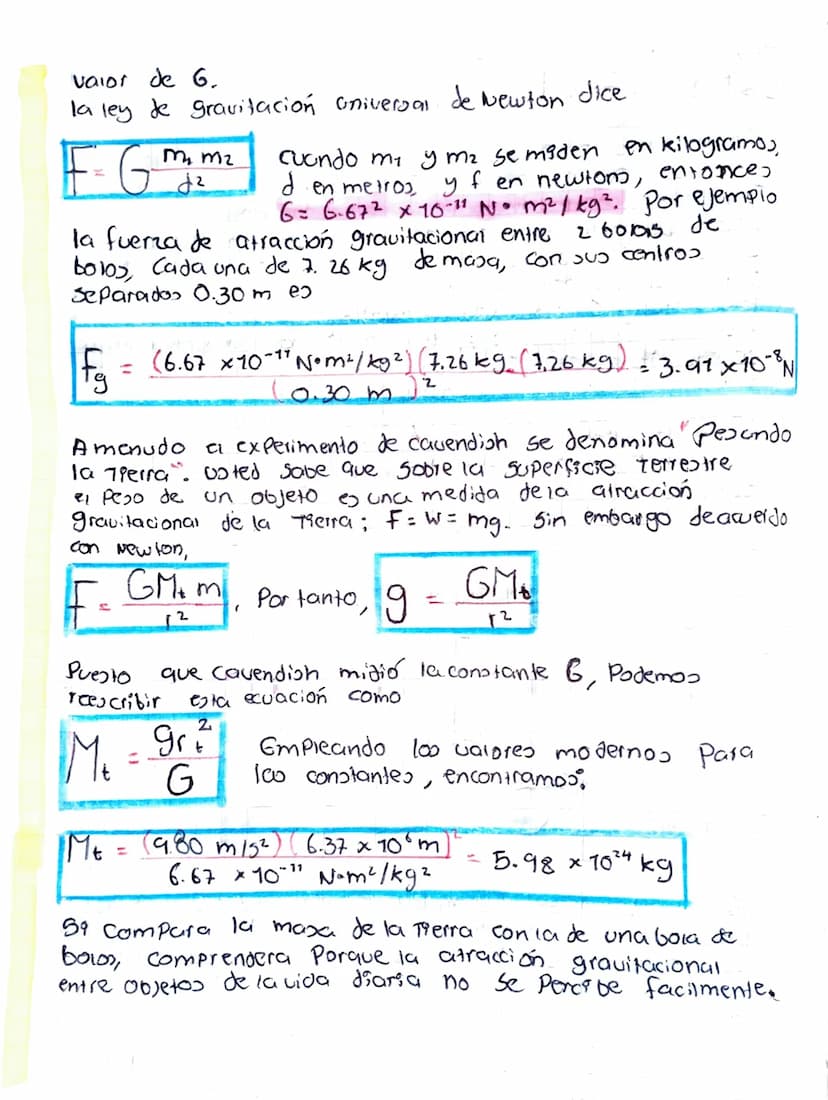 valor de G.
la ley de gravitación universal de Newton dice
F = G m₁ m₂ / d²
cuando m₁ y m₂ se miden en kilogramos,
d en metros y f en newtons, entonces
G = 6.67² × 10⁻¹¹ N • m² / kg². Por ejemplo
la fuerza de atracción gravitacional entre 2 bolas de
bolos, Cada una de 7.26 kg de masa, con sus centros
separados 0.30 m es
Fg = (6.67 × 10⁻¹¹ N•m²/kg²)(7.26 kg (7.26 kg) / (0.30 m)² = 3.91 × 10⁻⁸ N
A menudo el experimento de cavendish se denomina "Pesando
la Tierra". usted sabe que sobre la superficie terrestre
el Peso de un objeto es una medida de la atracción
gravitacional de la Tierra; F = W = mg. Sin embargo deacuerdo
con Newton,
F = GMt m / r², Por tanto, g = GMt / r²
Puesto que Cavendish midió la constante G, Podemos
reescribir esta ecuación como
Mt = grt² / G
Empleando los valores modernos Para
las constantes, encontramos:
Mt = (9.80 m/s²)(6.37 × 10⁶ m)² / 6.67 × 10⁻¹¹ N•m²/kg² = 5.98 × 10²⁴ kg
Si compara la masa de la Tierra con la de una bola de
bolos, comprendera Porque la atracción gravitacional
entre objetos de la vida diaria no se Percibe facilmente.